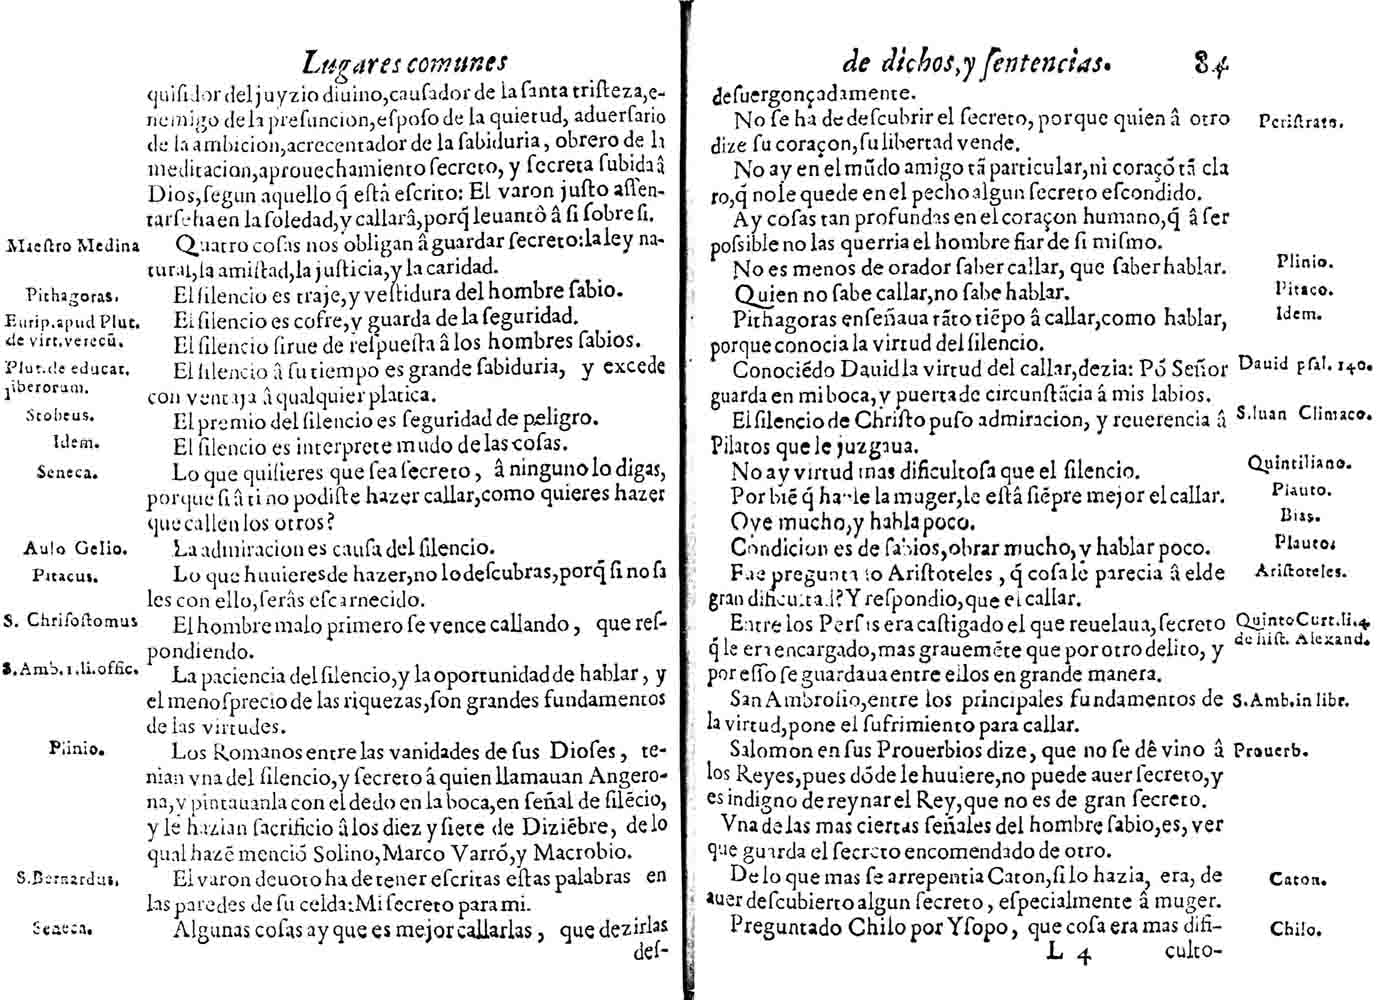 Lugares comunes
quisidor del juyzio diuino, causador de la santa tristeza, e-
nemigo de la presuncion, esposo de la quietud, aduersario
de la ambicion, acrecentador de la sabiduria, obrero de la
meditacion, aprouechamiento secreto, y secreta subida â
Dios, segun aquello q̃ estâ escrito: El varon justo assen-
tarseha en la soledad, y callarâ, porq̃ leuantò â si sobre si.
Maestro Medina Quatro cosas nos obligan â guardar secreto: la ley na-
tural, la amistad, la justicia, y la caridad.
Pithagoras. El silencio es traje, y vestidura del hombre sabio.
Eurip. apud Plut. El silencio es cofre, y guarda de la seguridad.
de virt. verecũ. El silencio sirue de respuesta â los hombres sabios.
Plut. de educat. El silencio â su tiempo es grande sabiduria, y excede
liberorum. con ventaja â qualquier platica.
Stobeus. El premio del silencio es seguridad de peligro.
Idem. El silencio es interprete mudo de las cosas.
Seneca. Lo que quisieres que sea secreto, â ninguno lo digas,
porque si â ti no podiste hazer callar, como quieres hazer
que callen los otros?
Aulo Gelio. La admiracion es causa del silencio.
Pitacus. Lo que huuieres de hazer, no lo descubras, porq̃ si no sa
les con ello, serâs escarnecido.
S. Chrisostomus El hombre malo primero se vence callando, que res-
pondiendo.
S. Amb. 1. li. offic. La paciencia del silencio, y la oportunidad de hablar, y
el menosprecio de las riquezas, son grandes fundamentos
de las virtudes.
Plinio. Los Romanos entre las vanidades de sus Dioses, te-
nian vna del silencio, y secreto â quien llamauan Angero-
na, y pintauanla con el dedo en la boca, en señal de silẽcio,
y le hazian sacrificio â los diez y siete de Diziẽbre, de lo
qual hazẽ menciõ Solino, Marco Varrõ, y Macrobio.
S. Bernardus. El varon deuoto ha de tener escritas estas palabras en
las paredes de su celda: Mi secreto para mi.
Seneca. Algunas cosas ay que es mejor callarlas, que dezirlas
des-
de dichos, y sentencias. 84
desuergonçadamente.
No se ha de descubrir el secreto, porque quien â otro Peristrato.
dize su coraçon, su libertad vende.
No ay en el mũdo amigo tã particular, ni coraçõ tã cla
ro, q̃ no le quede en el pecho algun secreto escondido.
Ay cosas tan profundas en el coraçon humano, q̃ â ser
possible no las querria el hombre fiar de si mismo.
No es menos de orador saber callar, que saber hablar. Plinio.
Quien no sabe callar, no sabe hablar. Pitaco.
Pithagoras enseñaua tãto tiẽpo â callar, como hablar, Idem.
porque conocia la virtud del silencio.
Conociẽdo Dauid la virtud del callar, dezia: Põ Señor Dauid psal. 140.
guarda en mi boca, y puerta de circunstãcia â mis labios.
El silencio de Christo puso admiracion, y reuerencia â S. Iuan Climaco.
Pilatos que le juzgaua.
No ay virtud mas dificultosa que el silencio. Quintiliano.
Por biẽ q̃ hable la muger, le estâ siẽpre mejor el callar. Plauto.
Oye mucho, y habla poco. Bias.
Condicion es de sabios, obrar mucho, y hablar poco. Plauto.
Fue preguntado Aristoteles, q̃ cosa le parecia â el de Aristoteles.
gran dificultad? Y respondio, que el callar.
Entre los Persas era castigado el que reuelaua, secreto Quinto Curt. li. 4
q̃ le era encargado, mas grauemẽte que por otro delito, y de hist. Alexand.
por esso se guardaua entre ellos en grande manera.
San Ambrosio, entre los principales fundamentos de S. Amb. in libr.
la virtud, pone el sufrimiento para callar.
Salomon en sus Prouerbios dize, que no se dê vino â Prouerb.
los Reyes, pues dõde le huuiere, no puede auer secreto, y
es indigno de reynar el Rey, que no es de gran secreto.
Vna de las mas ciertas señales del hombre sabio, es, ver
que guarda el secreto encomendado de otro.
De lo que mas se arrepentia Caton, si lo hazia, era, de Caton.
auer descubierto algun secreto, especialmente â muger.
Preguntado Chilo por Ysopo, que cosa era mas difi- Chilo.
L 4 culto-